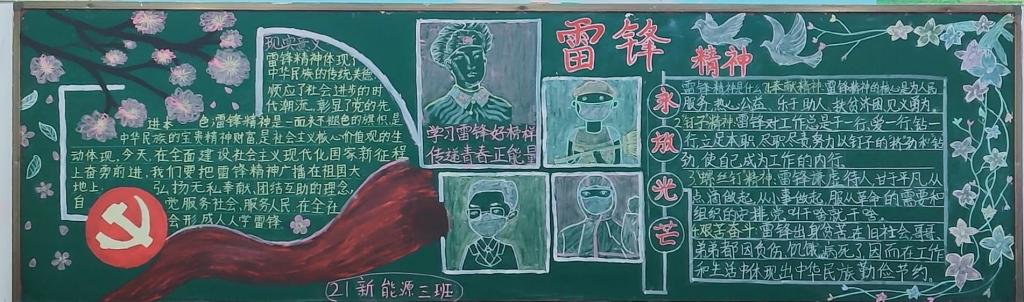 雷锋
精神
现实意义
雷锋精神体现了
中华民族的传统美德
顺应了社会进步的时
代潮流,彰显了党的先
进本 色雷锋精神是一面永不褪色的旗帜,是
中华民族的宝贵精神财富是社会主义核心价值观的生
动体现,今天,在全面建设社会主义现代化国家新征程
上奋勇前进,我们要把雷锋精神广播在祖国大
地上, 弘扬无私奉献,团结互助的理念,
自 觉服务社会,服务人民 在全社
会形成人人学雷锋
学习雷锋好榜样
传递青春正能量
21新能源三班
永
放
光
芒
雷锋精神是什么?1奉献精神:雷锋精神的核心是为人民
服务,热心公益,乐于助人,扶贫济困见义勇为,
2钉子精神,雷锋对工作总是干一行,爱一行钻一
行立足本职,尽职尽责努力以钉子的挤劲和钻
劲,使自己成为工作的内行.
3螺丝钉精神,雷锋谦虚待人,甘于平凡,从
点滴做起,从小事做起,服从革命的需要和
组织的安排党叫干啥就干啥.
4艰苦奋斗:雷锋出身贫苦在旧社会,哥哥、
弟弟都因负伤、饥饿病死了因而在工作
和生活中体现出中华民族勤俭节约.